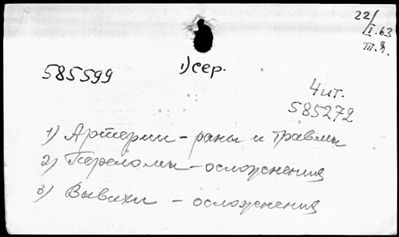 22/
I.63
т.я.
1) сер.
585599
4 ит.
585272
1) Артерии – раны и травмы
2) Переломы – осложнения
3) Вывихи – осложнения